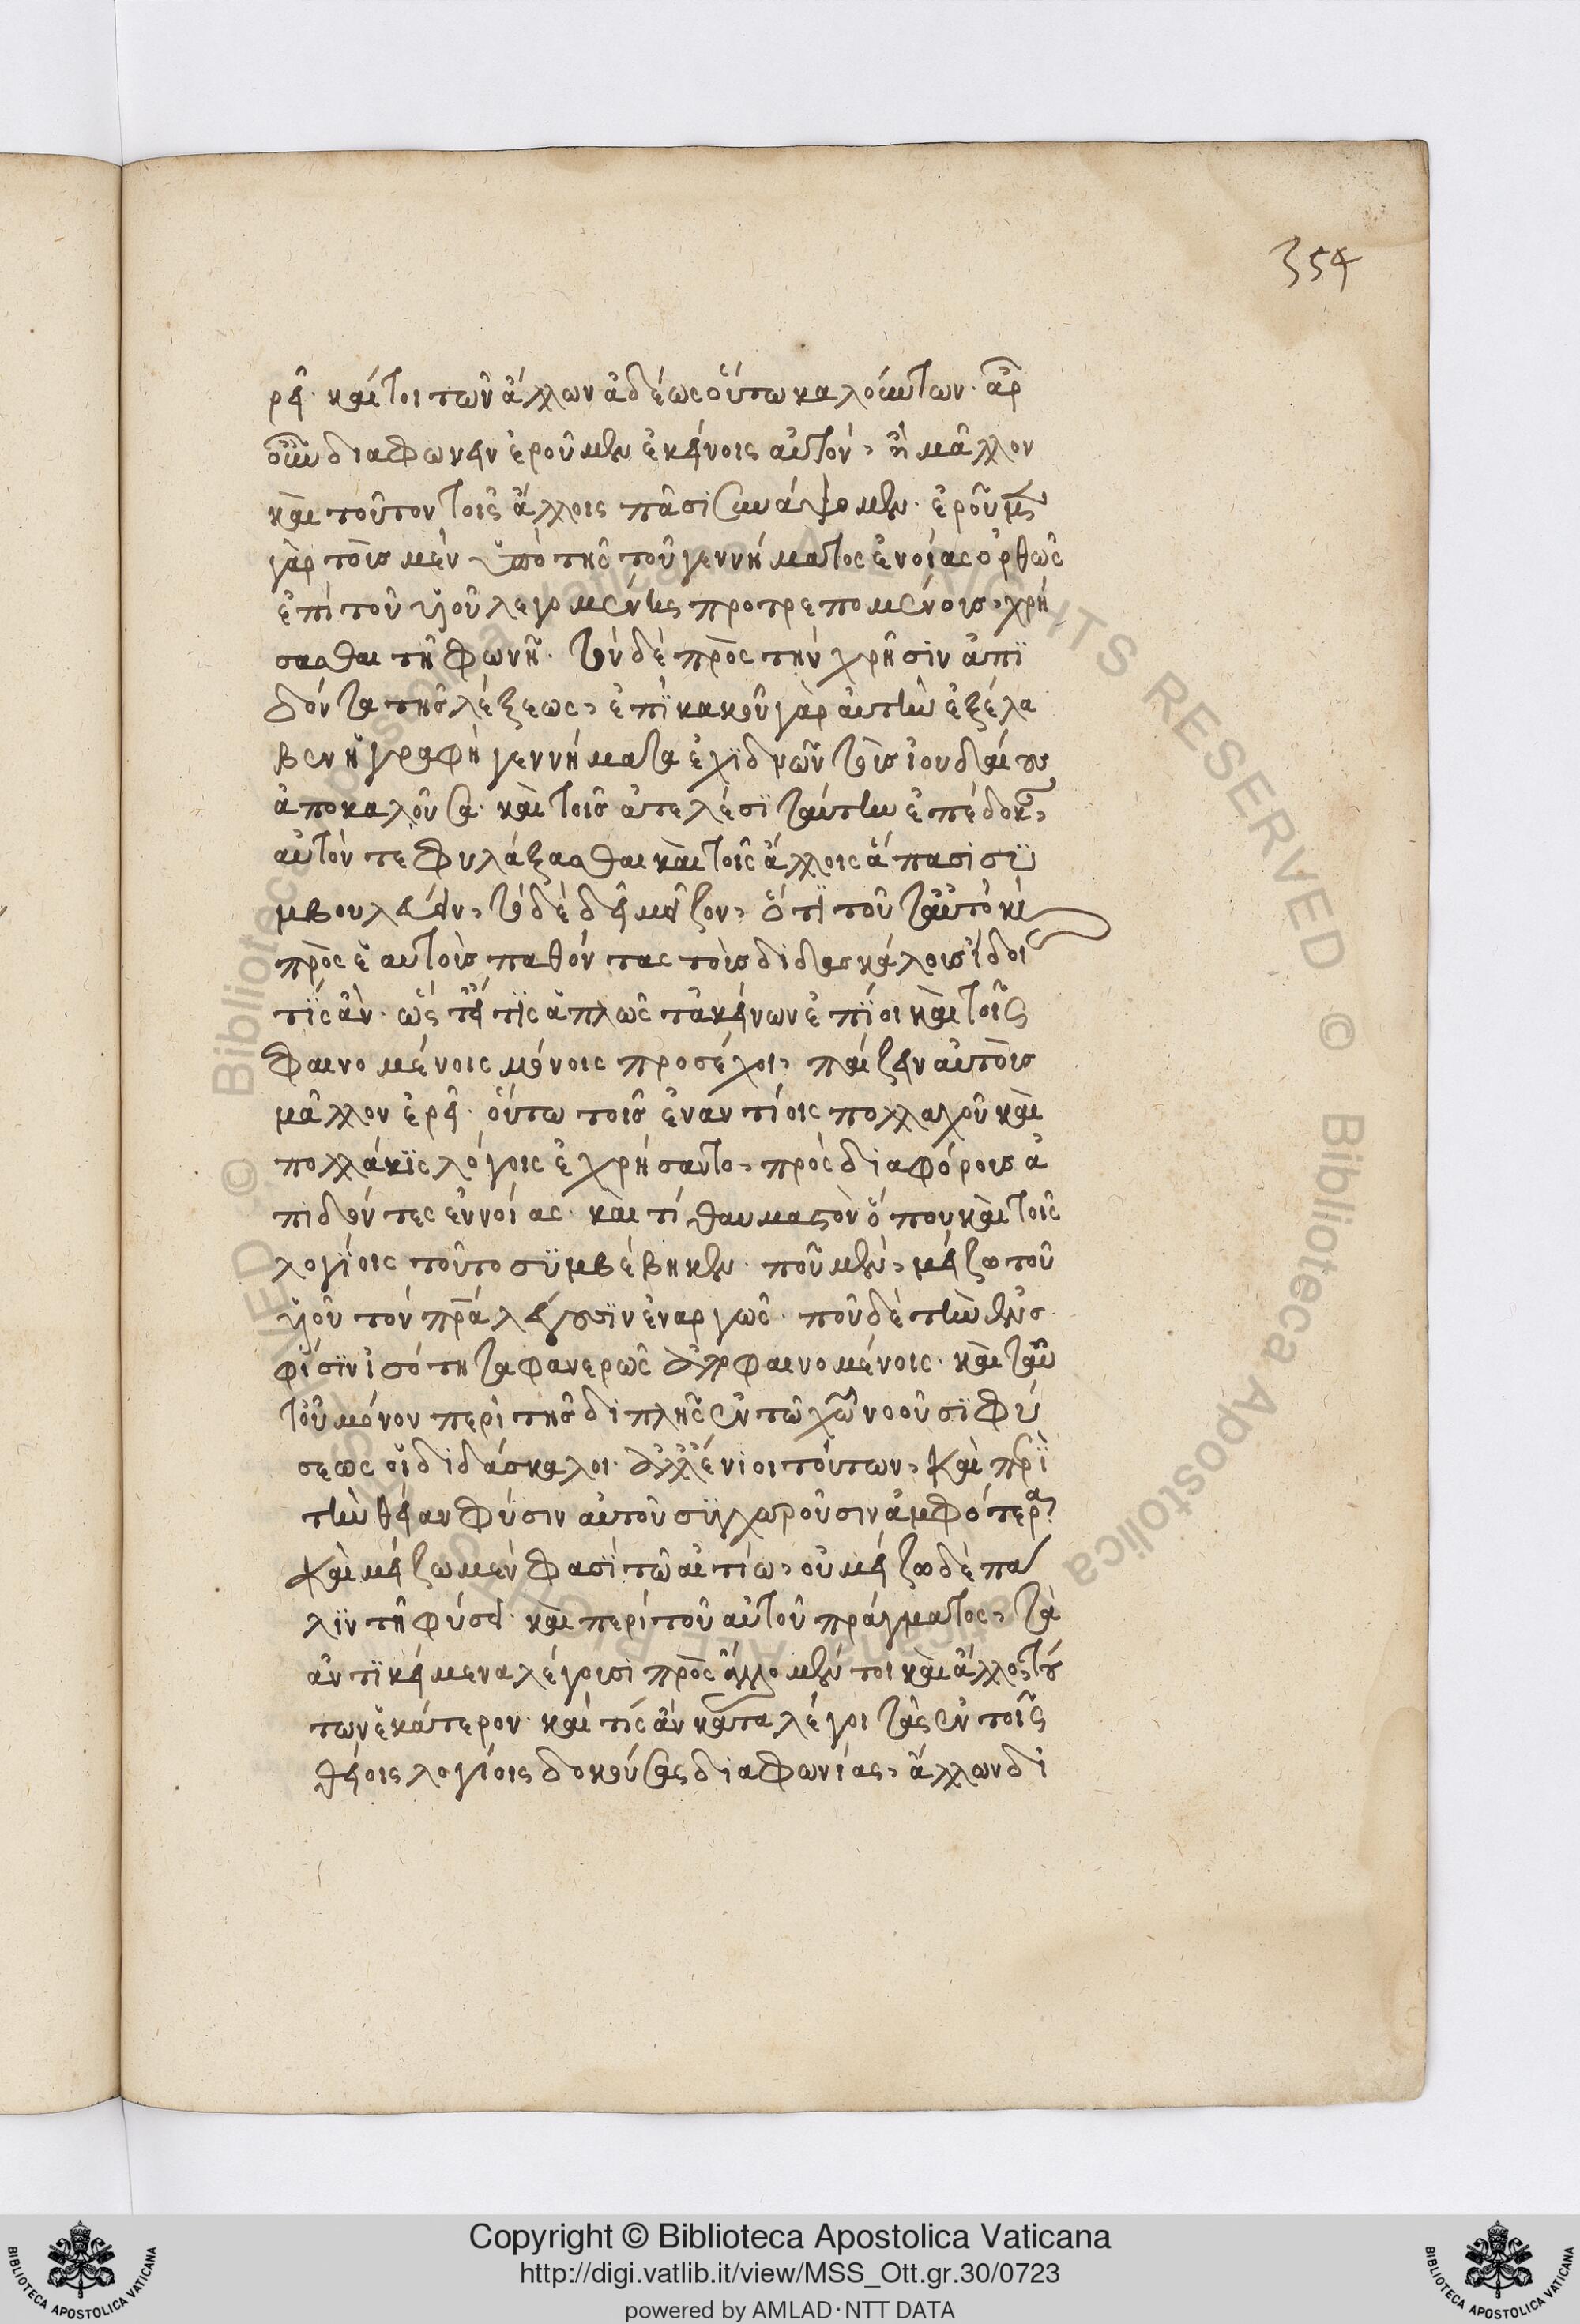 354
ρεῖ· καί τοι τῶν ἄλλων ἀδεῶς οὕτω καλούντων· ἆρ
οὖν διαφωνεῖν ἐροῦμεν ἐκείνοις αὐτόν, ἢ μᾶλλον
καὶ τοῦτον τοῖς ἄλλοις πᾶσι συνάψομεν· ἐροῦμεν
γὰρ τοὺς μὲν ὑπὸ τῆς τοῦ γεννήματος ἐνοίας ὀρθῶς
ἐπὶ τοῦ υἱοῦ λεγομένης προτρεπομένους, χρή
σασθαι τῇ φωνῇ· τὸν δὲ πρὸς τὴν χρῆσιν ἀπϊ
δόντα τῆς λέξεως, ἐπὶ κακοῦ γὰρ αὐτὴν ἐξέλα
βεν ἡ γραφὴ γεννήματα ἐχιδνῶν τοὺς ἰουδαίους
ἀποκαλοῦσα· καὶ τοῖς ἀτελέσι ταύτην ἐπέδωκε,
αὐτόν τε φυλάξασθαι καὶ τοῖς ἄλλοις ἅπασι συ
μβουλεύειν, τὸ δὲ δὴ μεῖζον, ὅτι τοῦ ταὐτὸ καὶ
πρὸς ἑαυτοὺς παθόντας τοὺς διδασκάλους ἴδοι
τίς ἄν· ὡς εἴ τις ἁπλῶς τἀκείνων ἐπίοι καὶ τοῖς
φαινομένοις μόνοις προσέχοι, παίζειν αὐτοὺς
μᾶλλον ἐρεῖ· οὕτω τοῖς ἐναντίοις πολλαχοῦ καὶ
πολλάκις λόγοις ἐχρήσαντο, πρὸς διαφόρους ἀ
πιδόντες ἐννοίας· καὶ τί θαυμαστὸν ὅπου καὶ τοῖς
λογίοις τοῦτο συμβέβηκεν· ποῦ μὲν, μείζω τοῦ
υἱοῦ τὸν πρα λέγουσιν ἐναργῶς· ποῦ δὲ τὴν
φύσιν ἰσότητα φανερῶς ἀποφαινομένοις· καὶ ταῦ
τοῦ μόνον περὶ τῆς διπλῆς ἐν τῷ χω νοοῦσι φύ
σεως οἱ διδάσκαλοι· ἀλλ' ἔνιοι τούτων, καὶ περὶ
τὴν θείαν φύσιν αὐτοῦ συγχωροῦσιν ἀμφότερα,
καὶ μείζω μὲν φασὶ τῷ αἰτίῳ, οὐ μείζω δὲ πά
λιν τῇ φύσει· καὶ περὶ τοῦ αὐτοῦ πράγματος, τὰ
ἀντικείμενα λέγουσι πρὸς ἄλλο μέν τοι καὶ ἄλλο τού
των ἑκάτερον· καὶ τίς ἂν καταλέγοι τὰς ἐν τοῖς
θείοις λογίοις δοκούσας διαφωνίας, ἄλλων δι
Copyright © Biblioteca Apostolica Vaticana
http://digi.vatlib.it/view/MSS_Ott.gr.30/0723
powered by AMLAD·NTT DATA